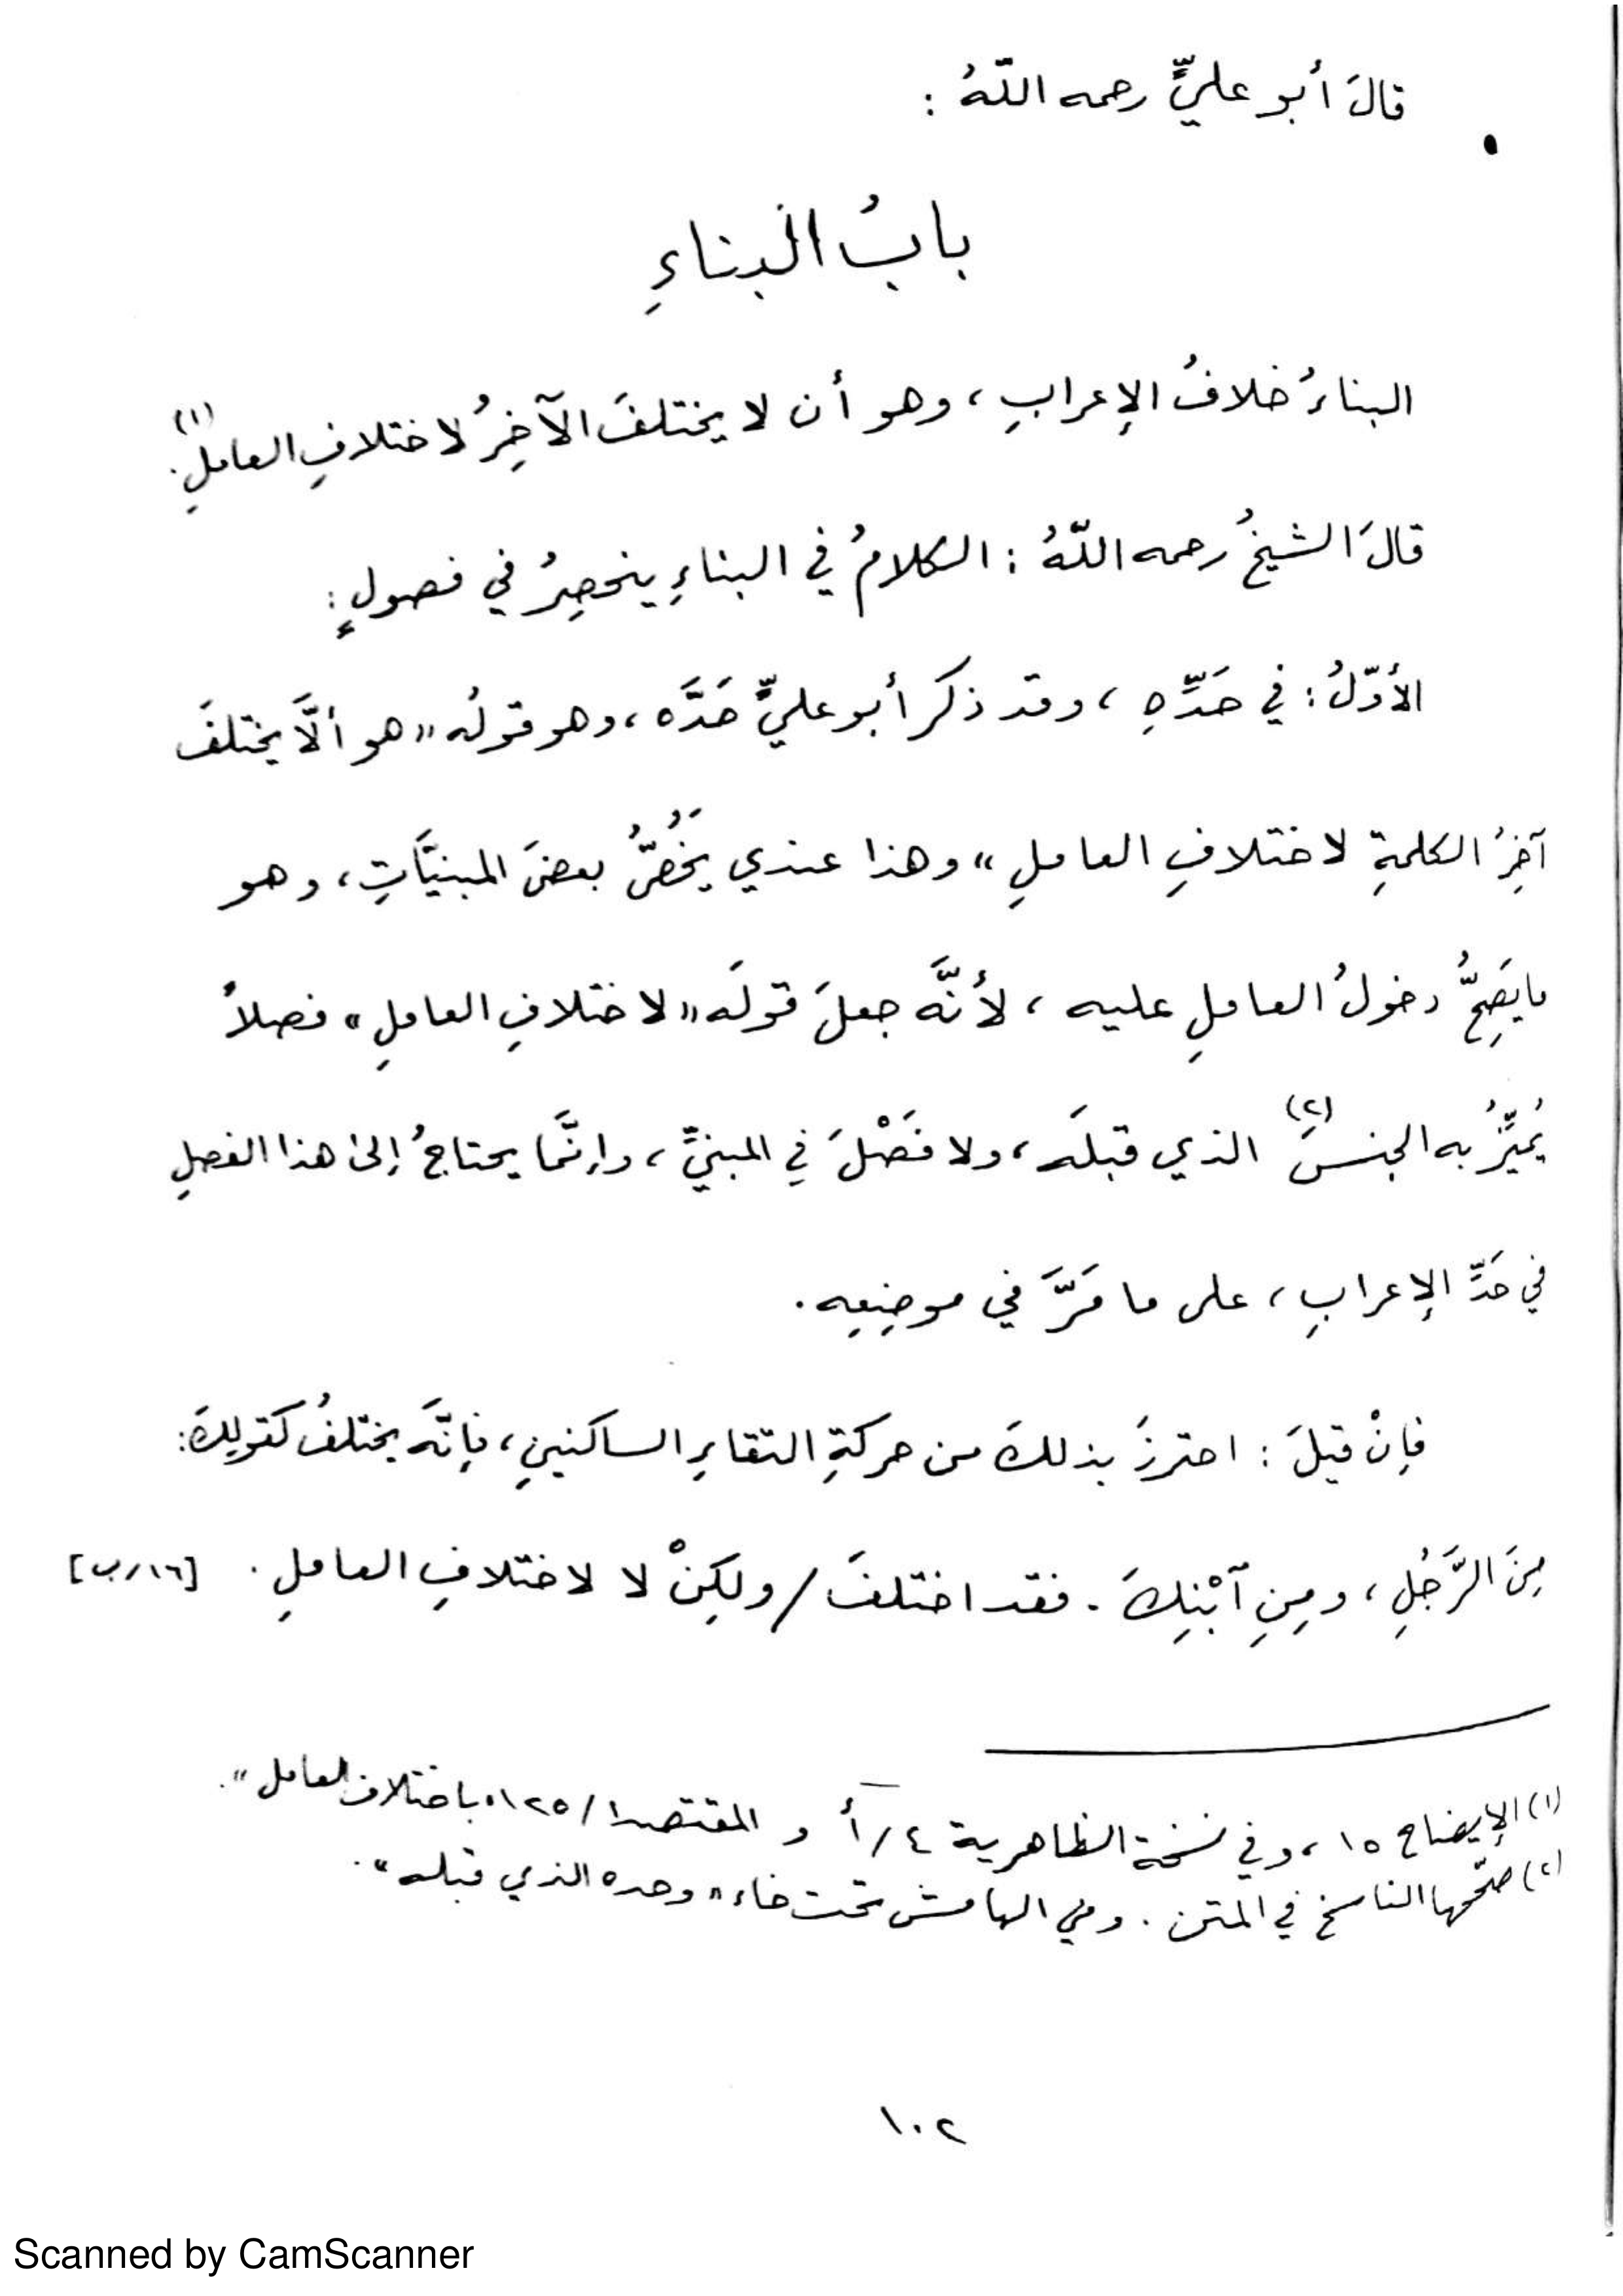 قالَ أبو عليٍّ رحمه اللّهُ :
بابُ البناءِ
البناءُ خلافُ الإعرابِ ، وهو أن لا يختلفَ الآخِرُ لاختلافِ العاملِ(١).
قالَ الشيخُ رحمه اللّهُ : الكلامُ في البناءِ ينحصِرُ في فصولٍ :
الأوّلُ : في حَدِّهِ ، وقد ذكر أبو عليٍّ حَدَّه ، وهو قولُه "هو ألَّا يختلفَ
آخِرُ الكلمةِ لاختلافِ العاملِ" وهذا عندي يَخُصُّ بعضَ المبنيَّاتِ ، وهو
ما يَصِحُّ دخولُ العاملِ عليه ، لأنَّه جعلَ قولَه "لاختلافِ العاملِ" فصلاً
يُميِّزُ به الجنسَ(٢) الذي قبلَه ، ولا فَصْلَ في المبنيِّ ، وإنَّما يحتاجُ إلى هذا الفصلِ
في حَدِّ الإعرابِ ، على ما مَرَّ في موضِعِه .
فإنْ قيلَ : احترزَ بذلكَ من حركةِ التقاءِ الساكنينِ ، فإنَّه يختلفُ كقولِكَ :
مِنَ الرَّجُلِ ، ومِنِ ٱبْنِكَ . فقد اختلفَ / ولكِنْ لا لاختلافِ العاملِ . [١٦/ب]
(١) الإيضاح ١٥ ، وفي نسخة الظاهرية ٤/أ و المقتصد ١/١٢٥ "باختلاف العامل" .
(٢) صحّحها الناسخ في المتن . وفي الهامش تحت خاء "وحده الذي قبله" .
١٠٢
Scanned by CamScanner